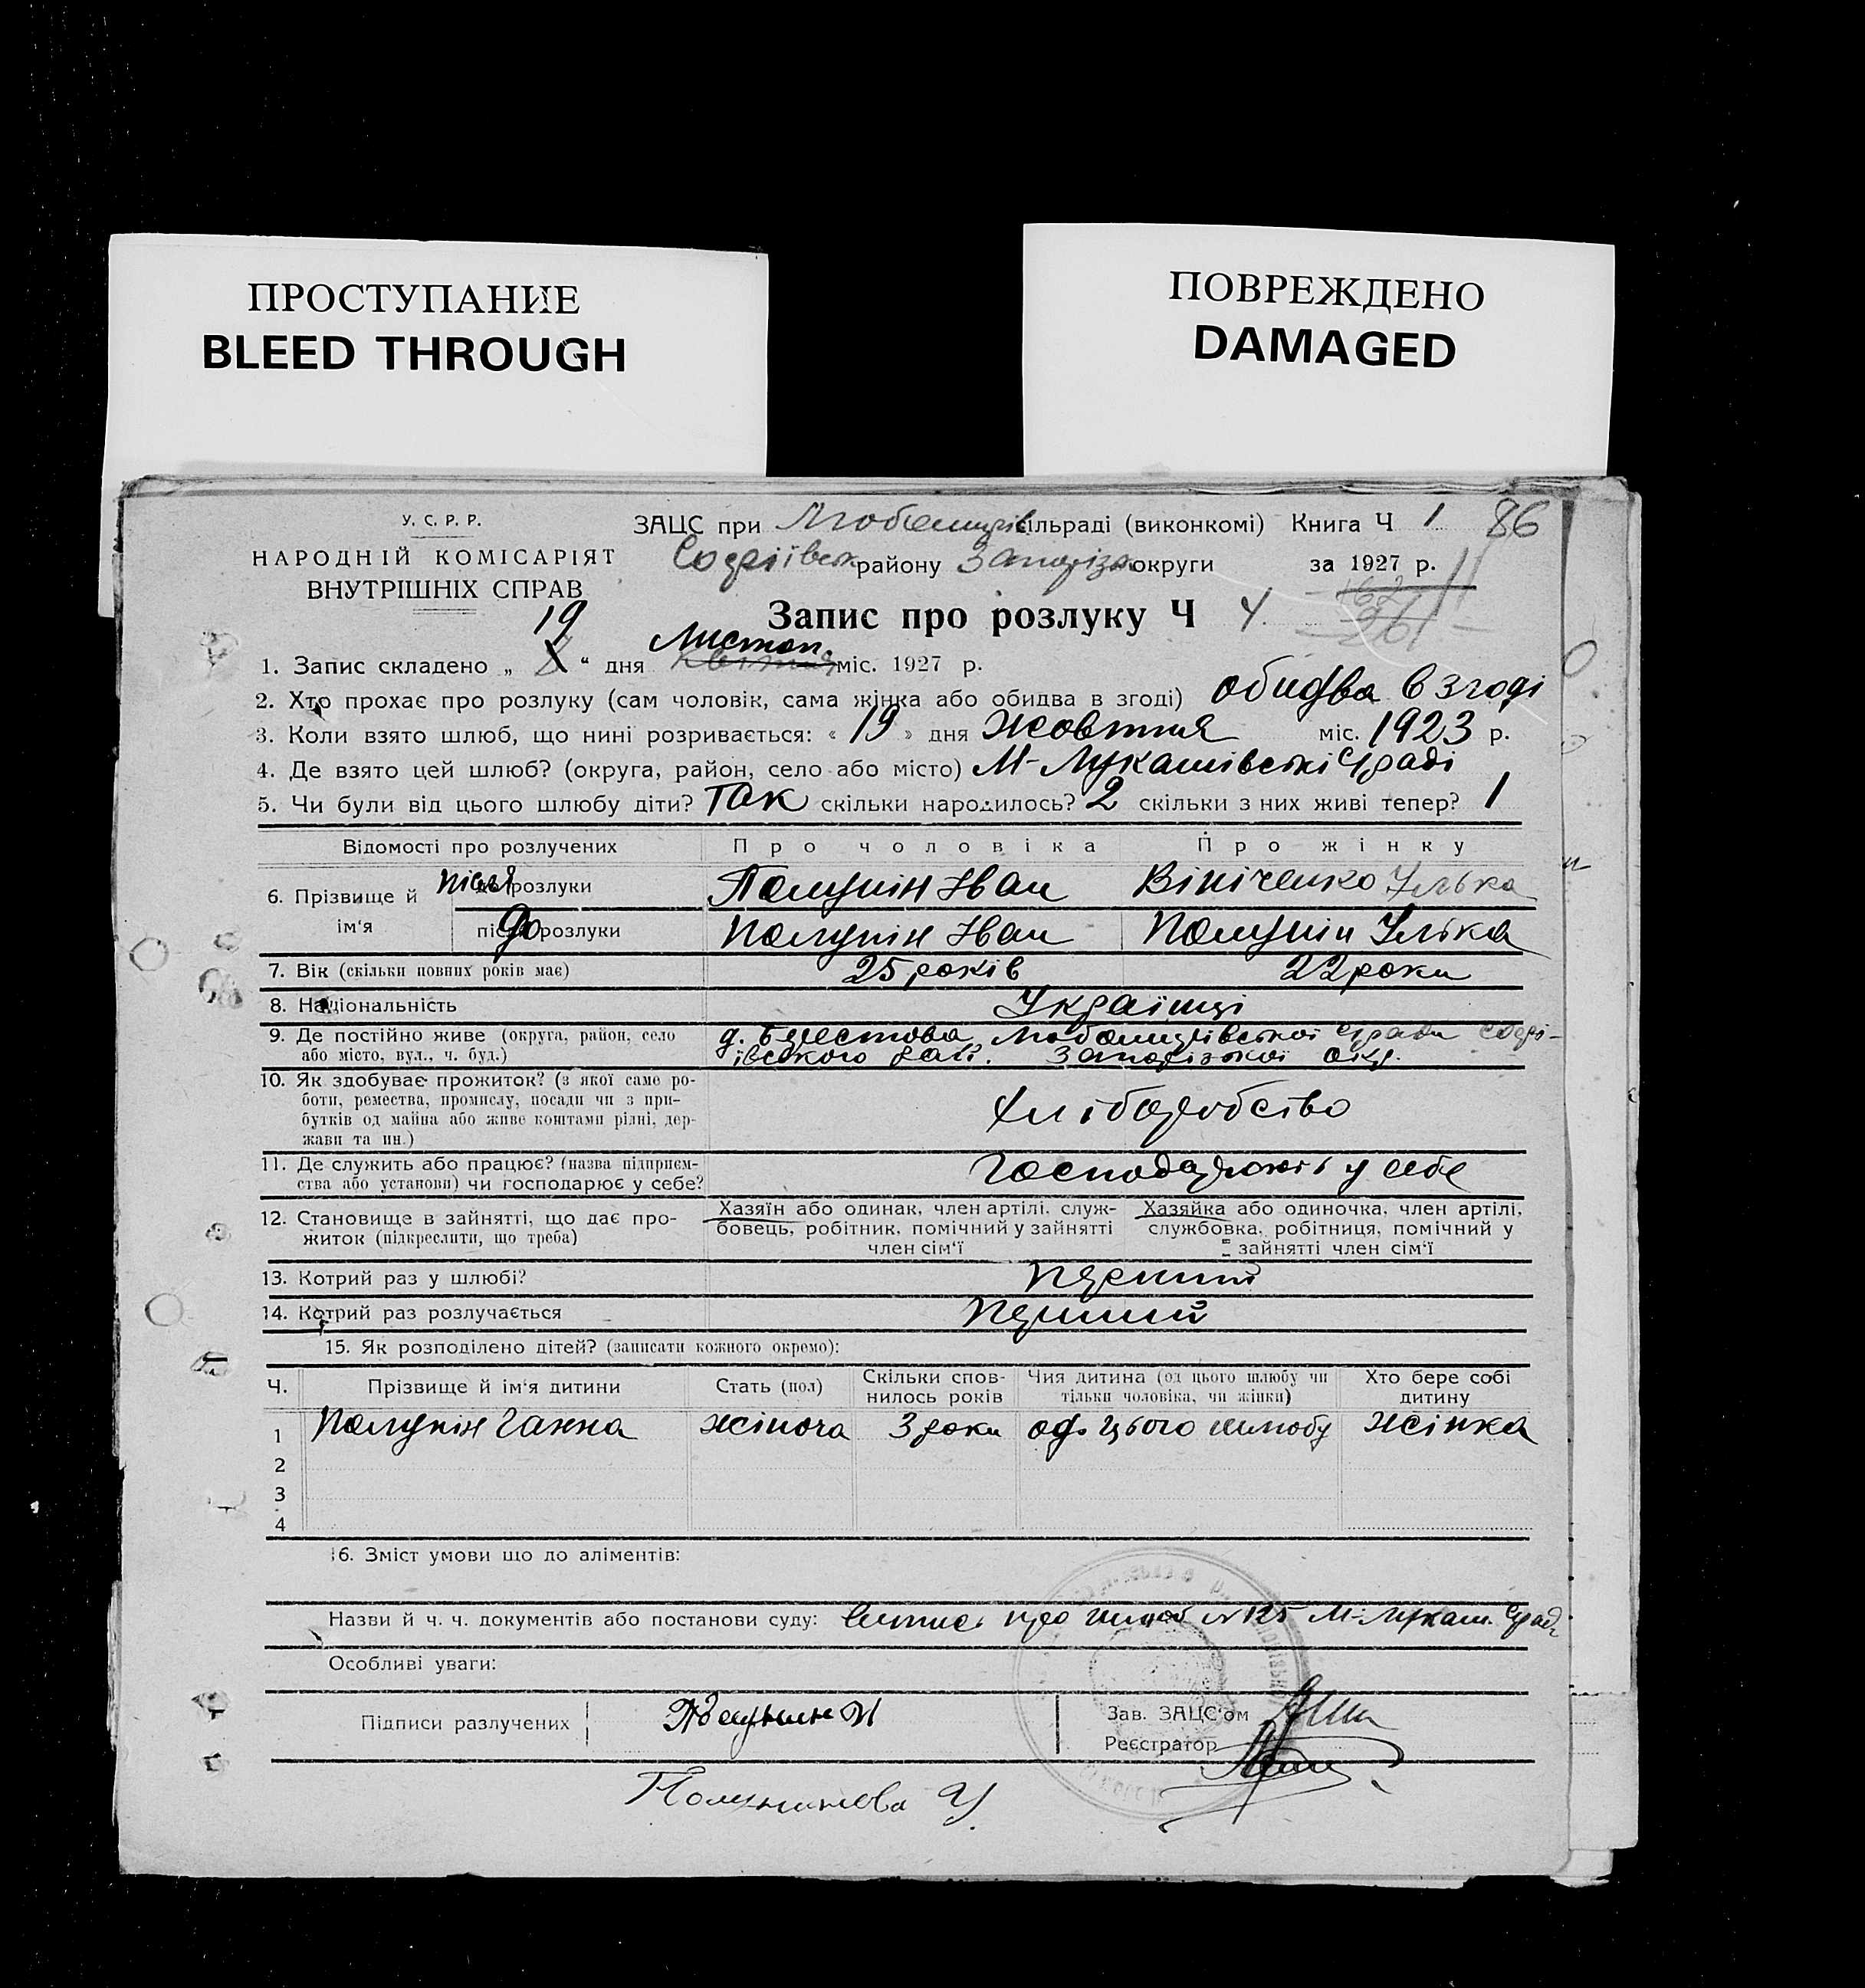 ПРОСТУПАНИЕ
BLEED THROUGH
ПОВРЕЖДЕНО
DAMAGED
У. С. Р. Р.
НАРОДНІЙ КОМІСАРІЯТ
ВНУТРІШНІХ СПРАВ
ЗАЦС при сільраді (виконкомі) Книга Ч 1 86
району округи за 1927 р.
Запис про розлуку Ч 4.
1. Запис складено „ 19 “ дня Листоп. міс. 1927 р.
2. Хто прохає про розлуку (сам чоловік, сама жінка або обидва в згоді) обидва в згоді
3. Коли взято шлюб, що нині розривається: « 19 » дня жовтня міс. 1923 р.
4. Де взято цей шлюб? (округа, район, село або місто) М-Лукашівські с/раді
5. Чи були від цього шлюбу діти? Так скільки народилось? 2 скільки з них живі тепер? 1
Відомості про розлучених Про чоловіка Про жінку
6. Прізвище й ім‘я
після розлуки Полупін Іван Вініченко Улька
до розлуки Полупін Іван Полупін Улька
7. Вік (скільки повних років має) 25 років 22 роки
8. Національність Українці
9. Де постійно живе (округа, район, село або місто, вул., ч. буд.)
івського рай. Запорізької окр.
10. Як здобуває прожиток? (з якої саме ро-
боти, ремества, промислу, посади чи з при-
бутків од майна або живе коштами рідні, дер-
жави та ин.)
Хліборобство
11. Де служить або працює? (назва підприєм-
ства або установи) чи господарює у себе?
Господарюють у себе
12. Становище в зайнятті, що дає про-
житок (підкреслити, що треба)
Хазяїн або одинак, член артілі, служ-
бовець, робітник, помічний у зайнятті
член сім‘ї
Хазяйка або одиночка, член артілі,
службовка, робітниця, помічний у
зайнятті член сім‘ї
13. Котрий раз у шлюбі? Перший
14. Котрий раз розлучається Перший
15. Як розподілено дітей? (записати кожного окремо):
Ч. Прізвище й ім‘я дитини Стать (пол) Скільки спов-
нилось років Чия дитина (од цього шлюбу чи
тільки чоловіка, чи жінки) Хто бере собі
дитину
1 Полупін Ганна жіноча 3 роки од цього шлюбу жінка
2
3
4
16. Зміст умови що до аліментів:
Назви й ч. ч. документів або постанови суду: Витис про шлюб N 125 М-Лукаш. с/рад
Особливі уваги:
Підписи разлучених
Зав. ЗАЦС‘ом
Реєстратор